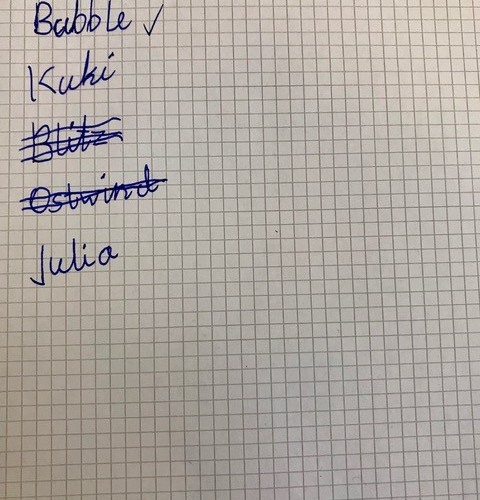 Bubble ✓
Kuki
Blitz
Ostwind
Julia